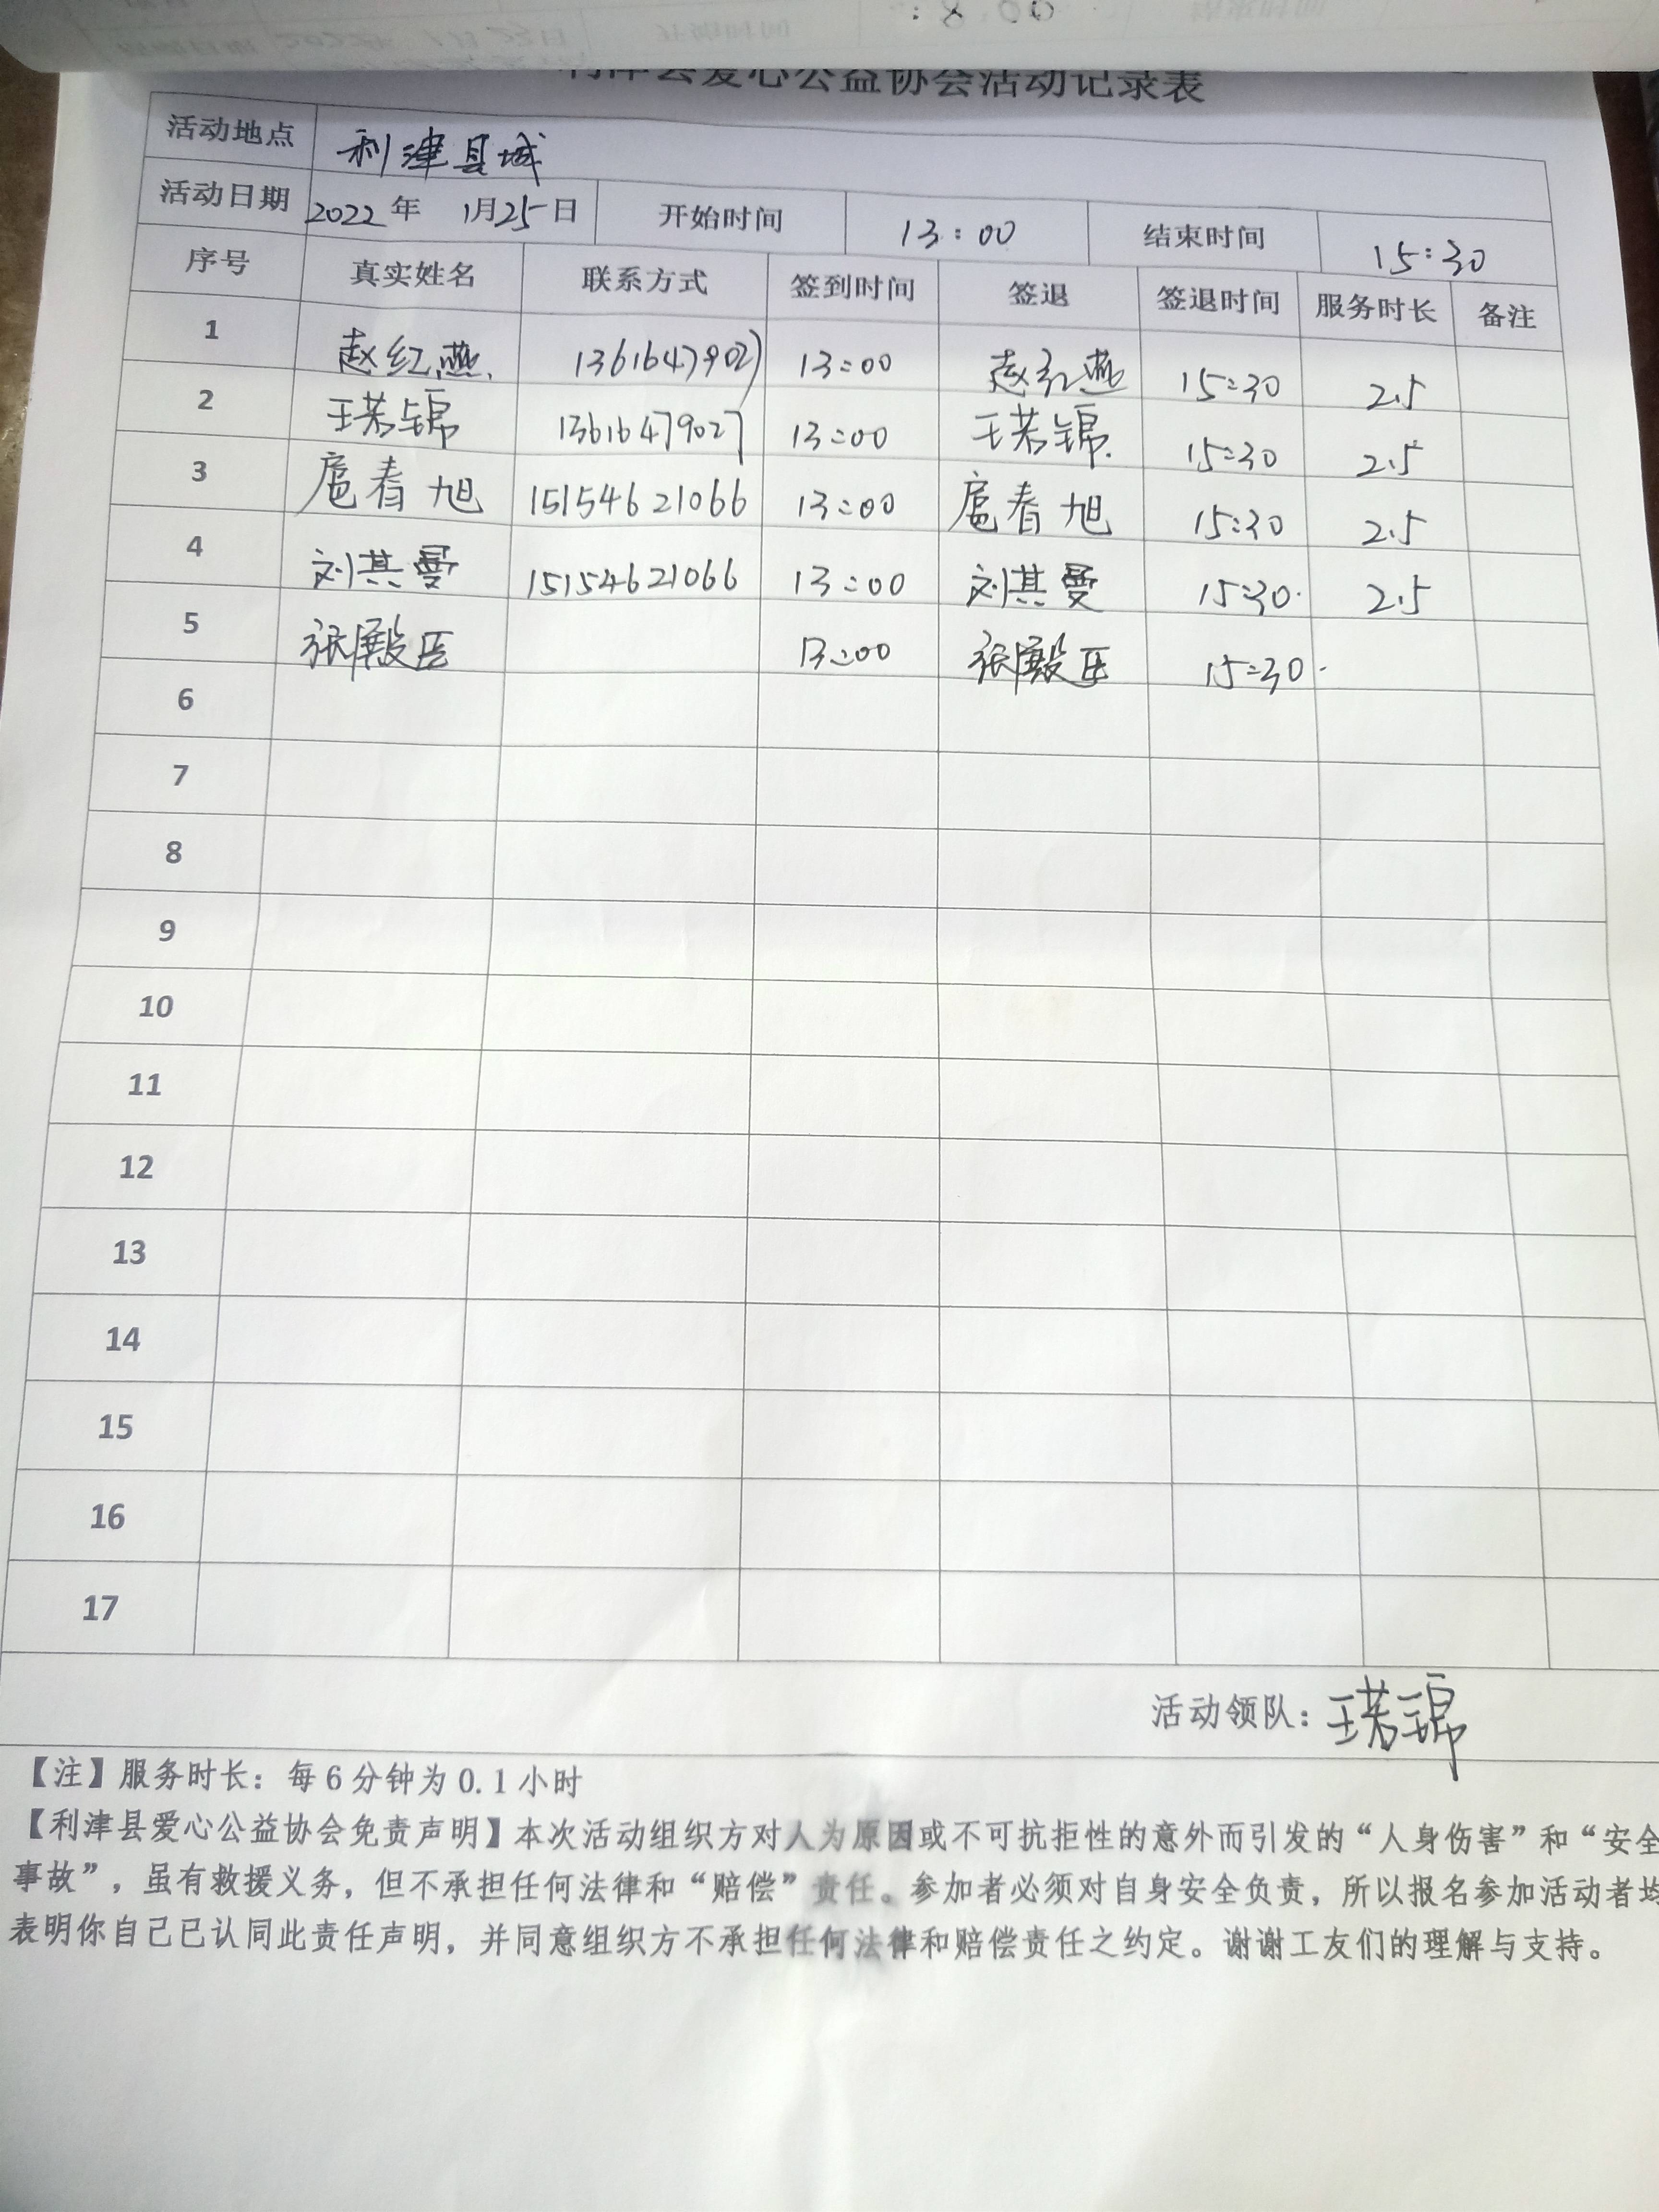 爱心公益协会活动记录表
活动地点 利津县城
活动日期 2022年 1月25日 开始时间 13:00 结束时间 15:30
序号 真实姓名 联系方式 签到时间 签退 签退时间 服务时长 备注
1 赵红燕 13616479027 13:00 赵红燕 15:30 2.5
2 王若锦 13616479027 13:00 王若锦 15:30 2.5
3 扈春旭 15154621066 13:00 扈春旭 15:30 2.5
4 刘其曼 15154621066 13:00 刘其曼 15:30 2.5
5 张殿臣 13:00 张殿臣 15:30
6
7
8
9
10
11
12
13
14
15
16
17
活动领队：王若锦
【注】服务时长：每6分钟为0.1小时
【利津县爱心公益协会免责声明】本次活动组织方对人为原因或不可抗拒性的意外而引发的“人身伤害”和“安全
事故”，虽有救援义务，但不承担任何法律和“赔偿”责任。参加者必须对自身安全负责，所以报名参加活动者均
表明你自己已认同此责任声明，并同意组织方不承担任何法律和赔偿责任之约定。谢谢工友们的理解与支持。